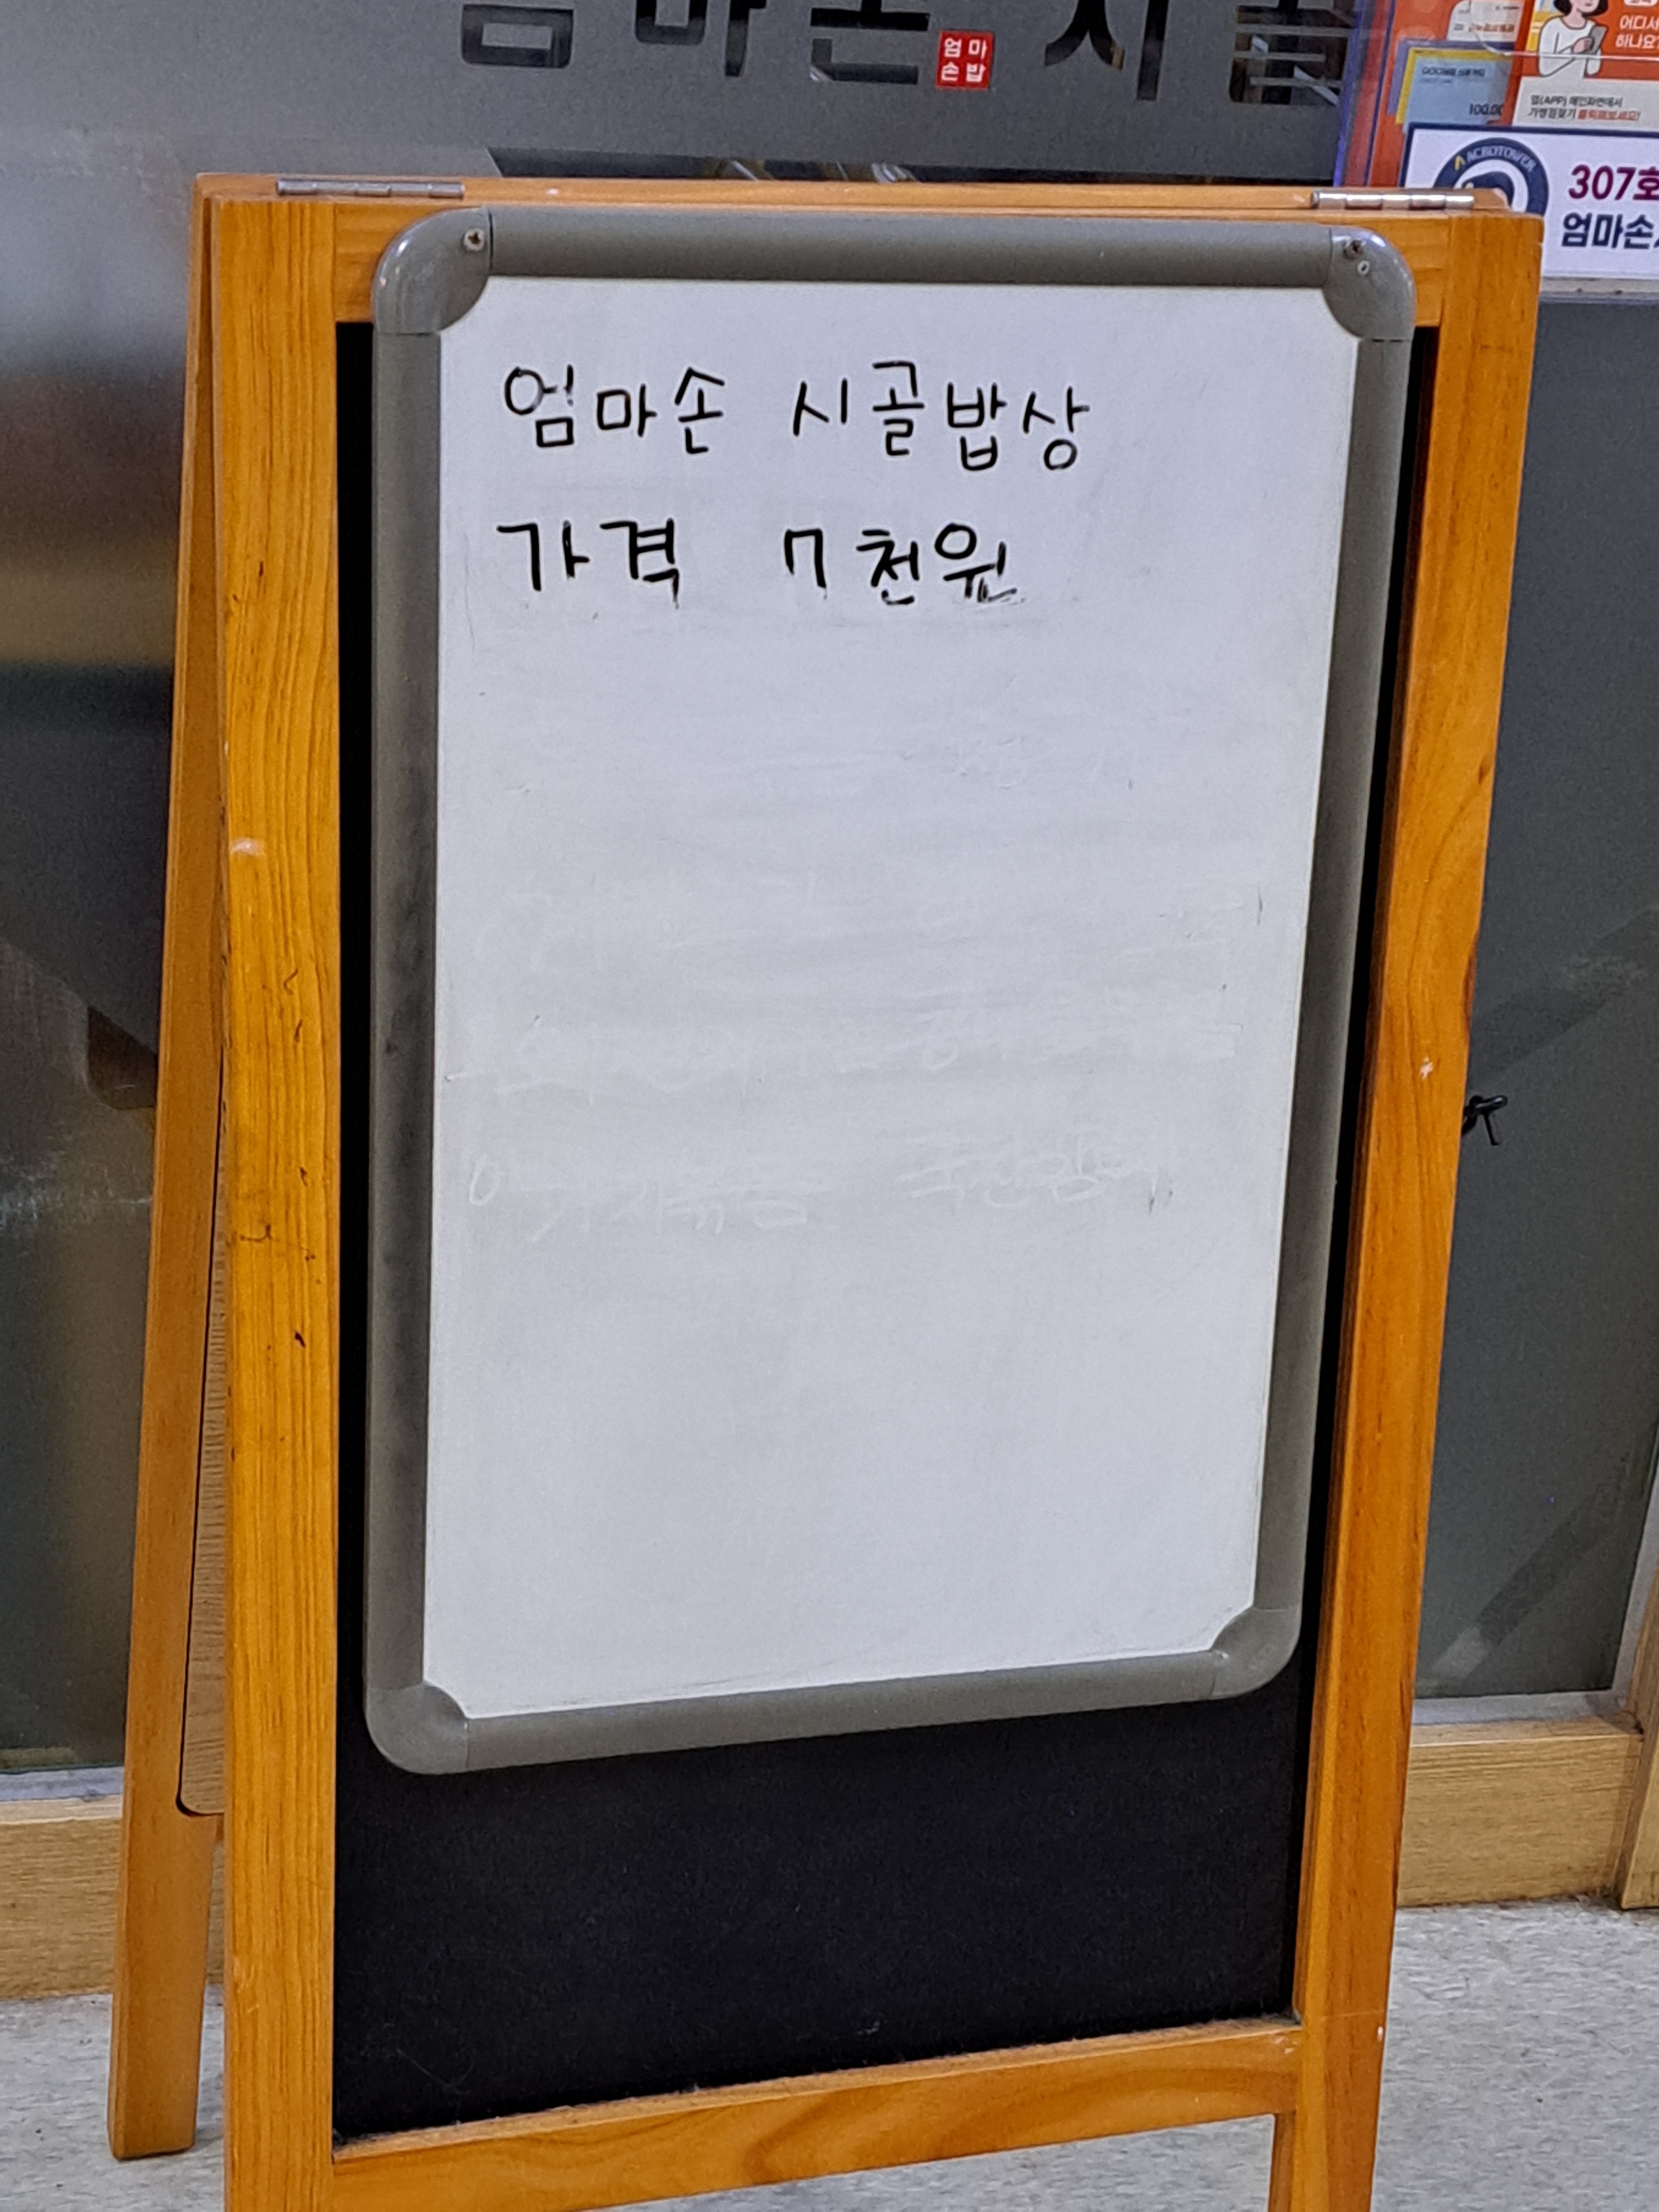 엄마손 시골
엄마
손밥
어디서
하나요?
100.00
앱(APP) 메인화면에서
가맹점찾기 클릭해보세요!
ACROTOWER
307호
엄마손
엄마손 시골밥상
가격 7천원
가지볶음